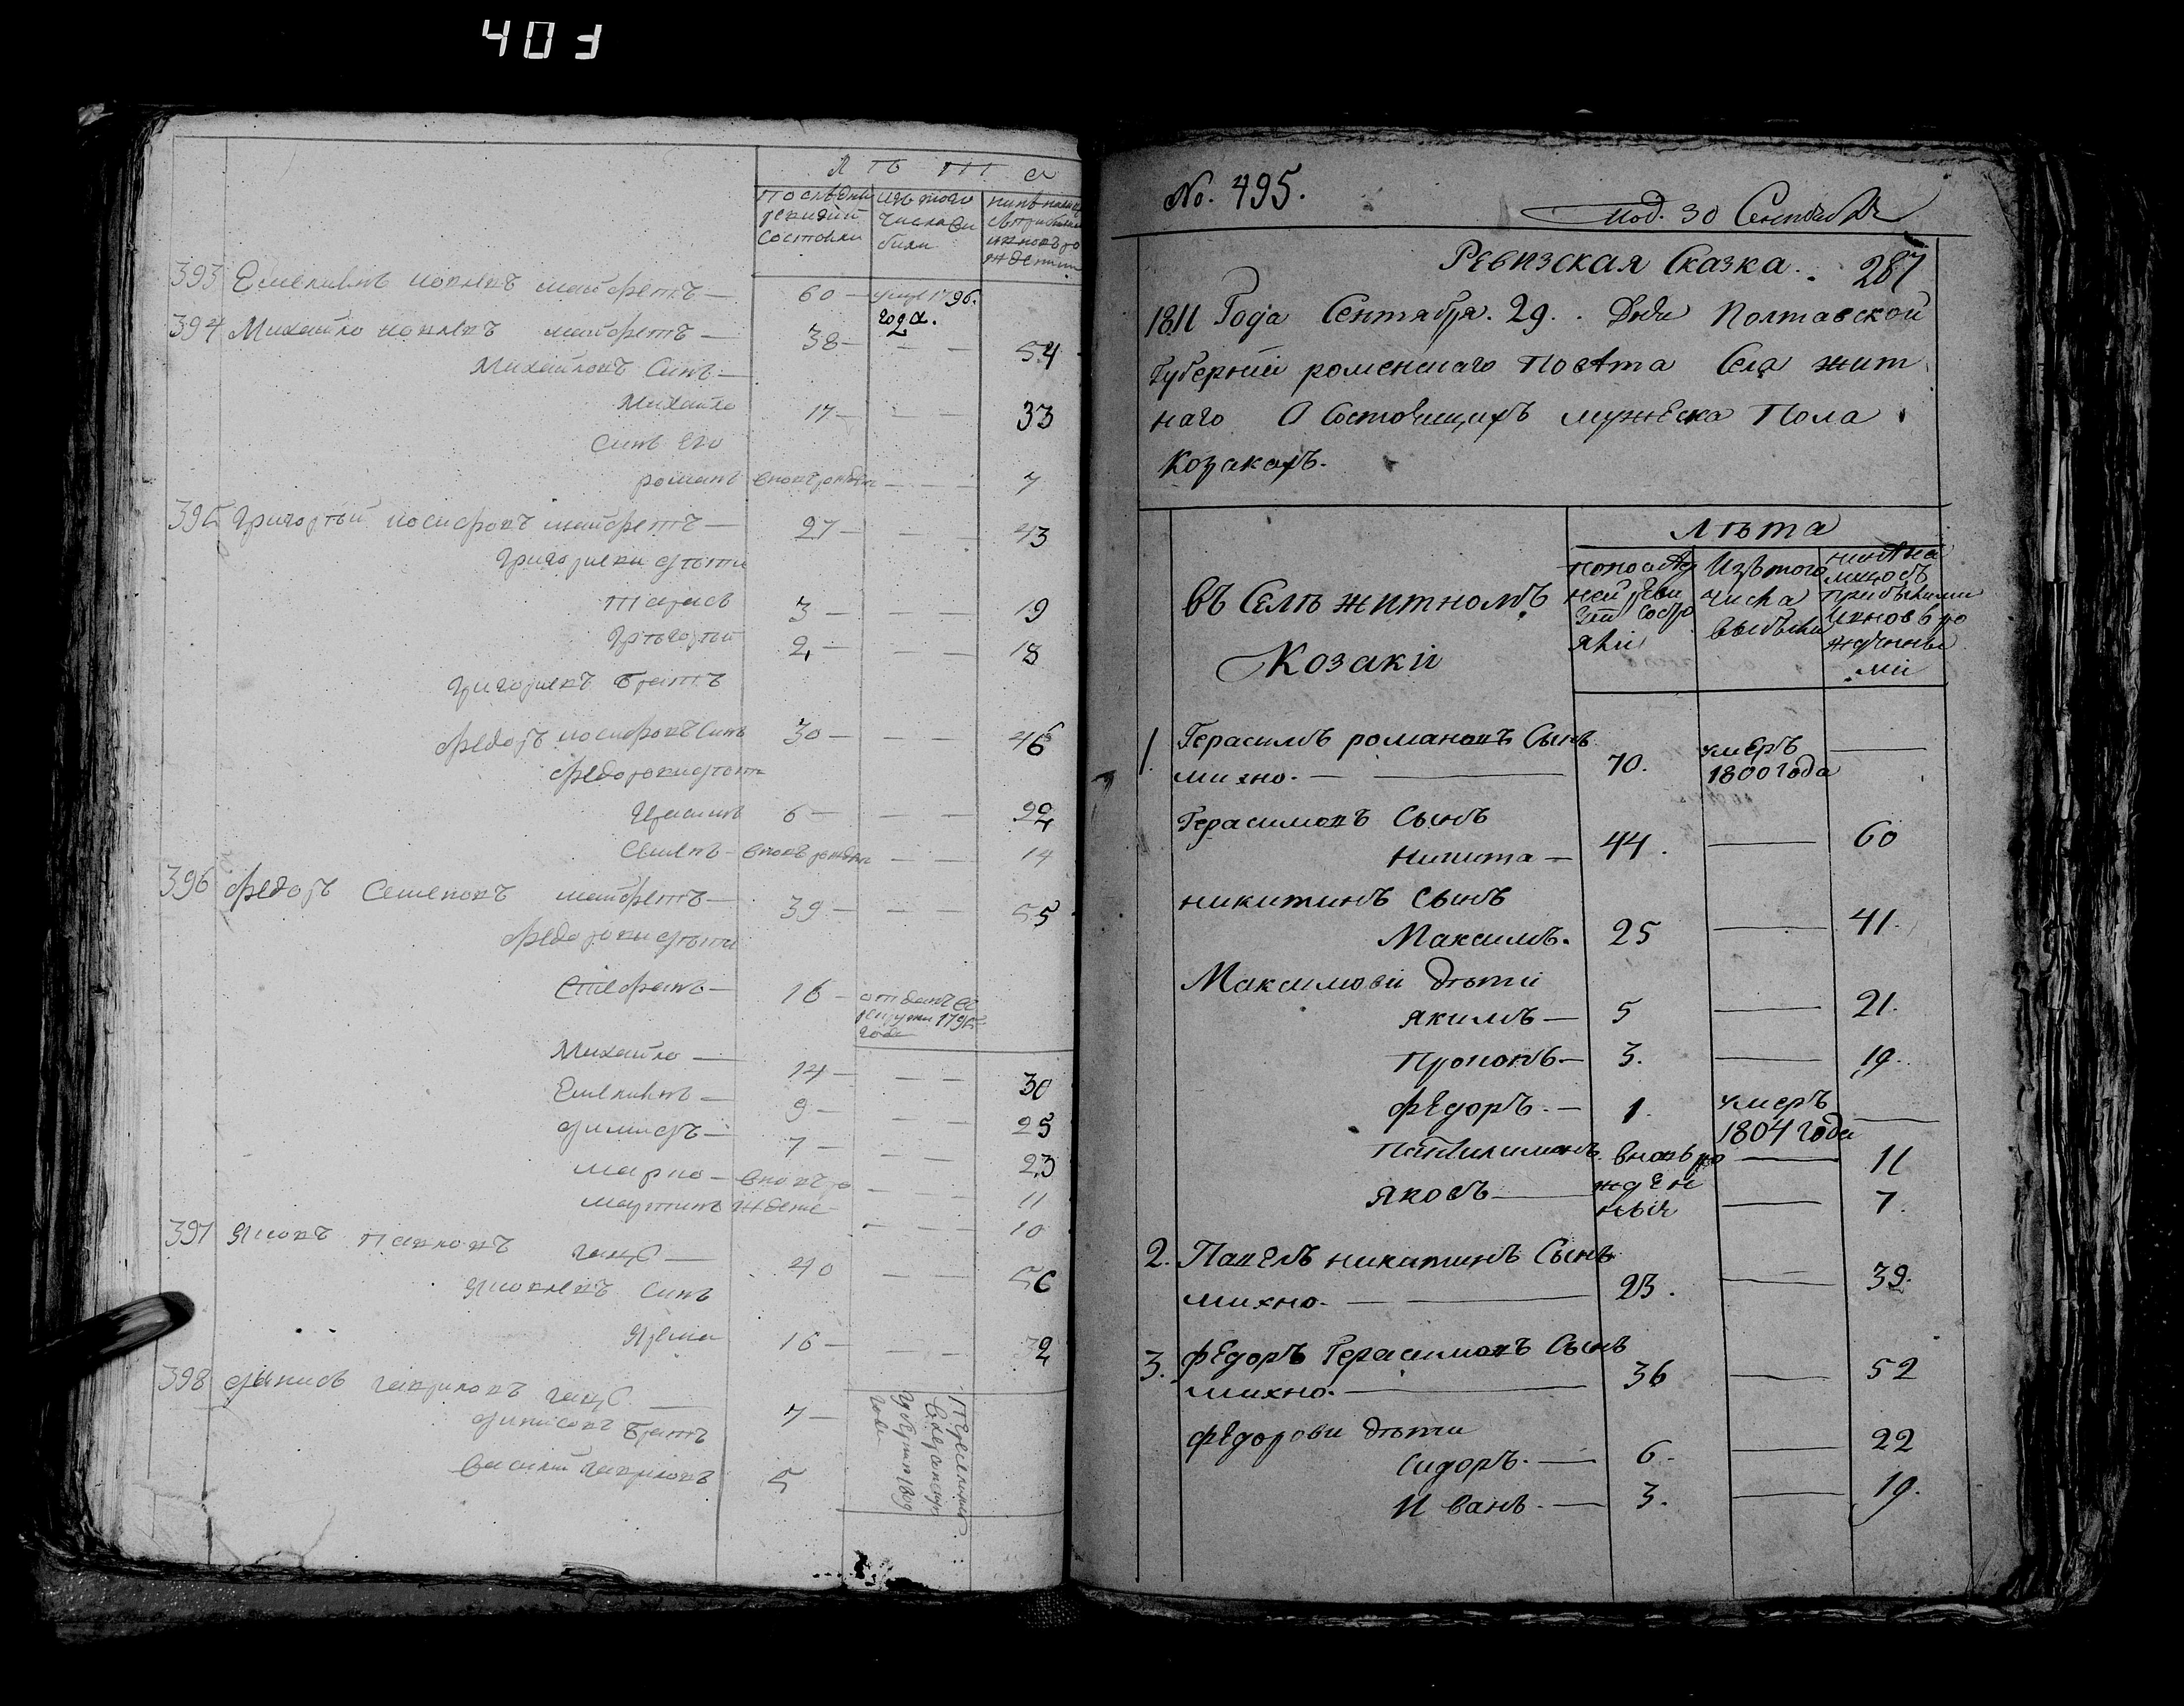 403
Л ѣ т а
Последней ревизии состояли
изъ того числа выбыли
нинѣ на лицо съ прибылими и вновь рожденими
393 Емелианъ иовлевъ — 60 — умре 1796. года.
394 Михайло иовлевъ — 38 — — — 54
Михайловъ Синъ —
Михайло 17 — — — 33
Синъ Его
романъ вновь рожден — — 7
395 Григорий иосифовъ — 27 — — — 43
Григориеви дѣти
Тарасъ 3 — — — 19
Григорий 2 — — — 18
Григориевъ братъ
Федоръ иосифовъ Синъ 30 — — — 46
Федорови дѣти
Герасимъ 6 — — — 22
Семенъ — вновь рожден — — 14
396 Федоръ Семеновъ — 39 — — — 55
Федорови дѣти
Стефанъ — 16 — отданъ въ рекруты 1795 года
Михайло — 14 — — — 30
Емелианъ — 9 — — — 25
Димидъ — 7 — — — 23
Марко — вновь ро — 11
Мартинъ ждение — — 10
397 Яковъ Павловъ — 40 — — 56
Яковлевъ Синъ
Ярема 16 — — — 32
398 Данисъ гавриловъ — 7 —
братъ
Василий гавриловъ 5
Губернию 1809 Года
No. 495.
под. 30 Сентября
Ревизская Сказка. 287
1811 Года Сентября. 29. Дня Полтавской
Губерніи роменскаго Повѣта Села жит
наго О Состоящихъ мужеска Пола
Козакахъ.
Лѣта
въ Селѣ житномъ
Козакіи
попослѣд ней реви зіи состо яли
Изъ того числа выбыли
нинѣ на лицо съ прибылими и вновь ро жденны ми
1. Герасимъ романовъ Сынъ
михно. — 70. умеръ 1800 года —
Герасимовъ Сынъ
Никита — 44. — 60
никитинъ Сынъ
Максимъ. 25 — 41.
Максимови дѣти
якимъ — 5 — 21.
Прокопъ — 3. — 19.
федоръ. — 1. умеръ 1804 года —
Пантилимонъ. вновь ро — 11
яковъ — жден ныя — 7.
2. Павелъ никитинъ Сынъ
михно. — 23. — 39.
3. федоръ Герасимовъ Сынъ
михно. — 36 — 52
федорови дѣти
Сидоръ. — 6. — 22
Иванъ. — 3. — 19.